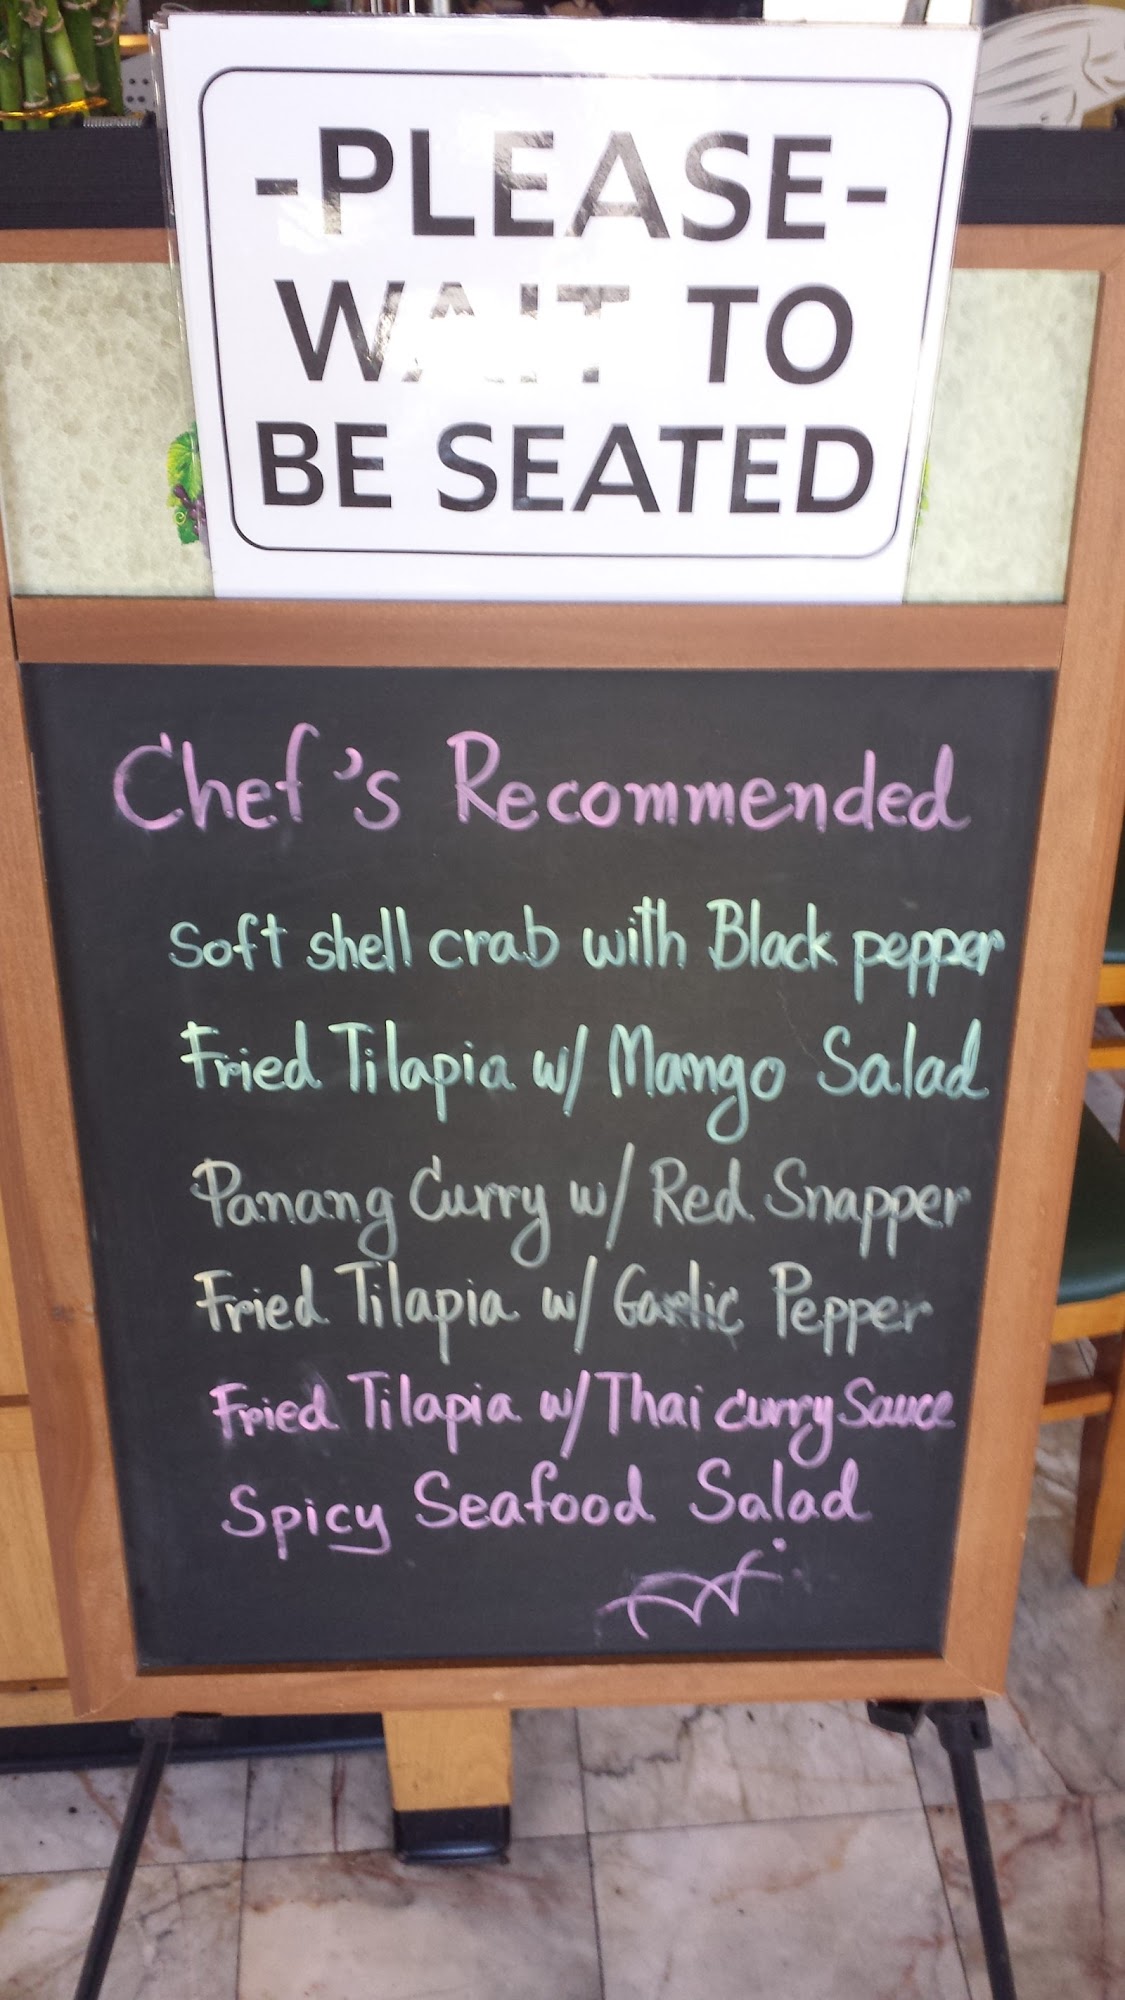 -PLEASE-
WAIT TO
BE SEATED
Chef's Recommended
Soft shell crab with Black pepper
Fried Tilapia w/ Mango Salad
Panang Curry w/ Red Snapper
Fried Tilapia w/ Garlic Pepper
Fried Tilapia w/ Thai curry Sauce
Spicy Seafood Salad